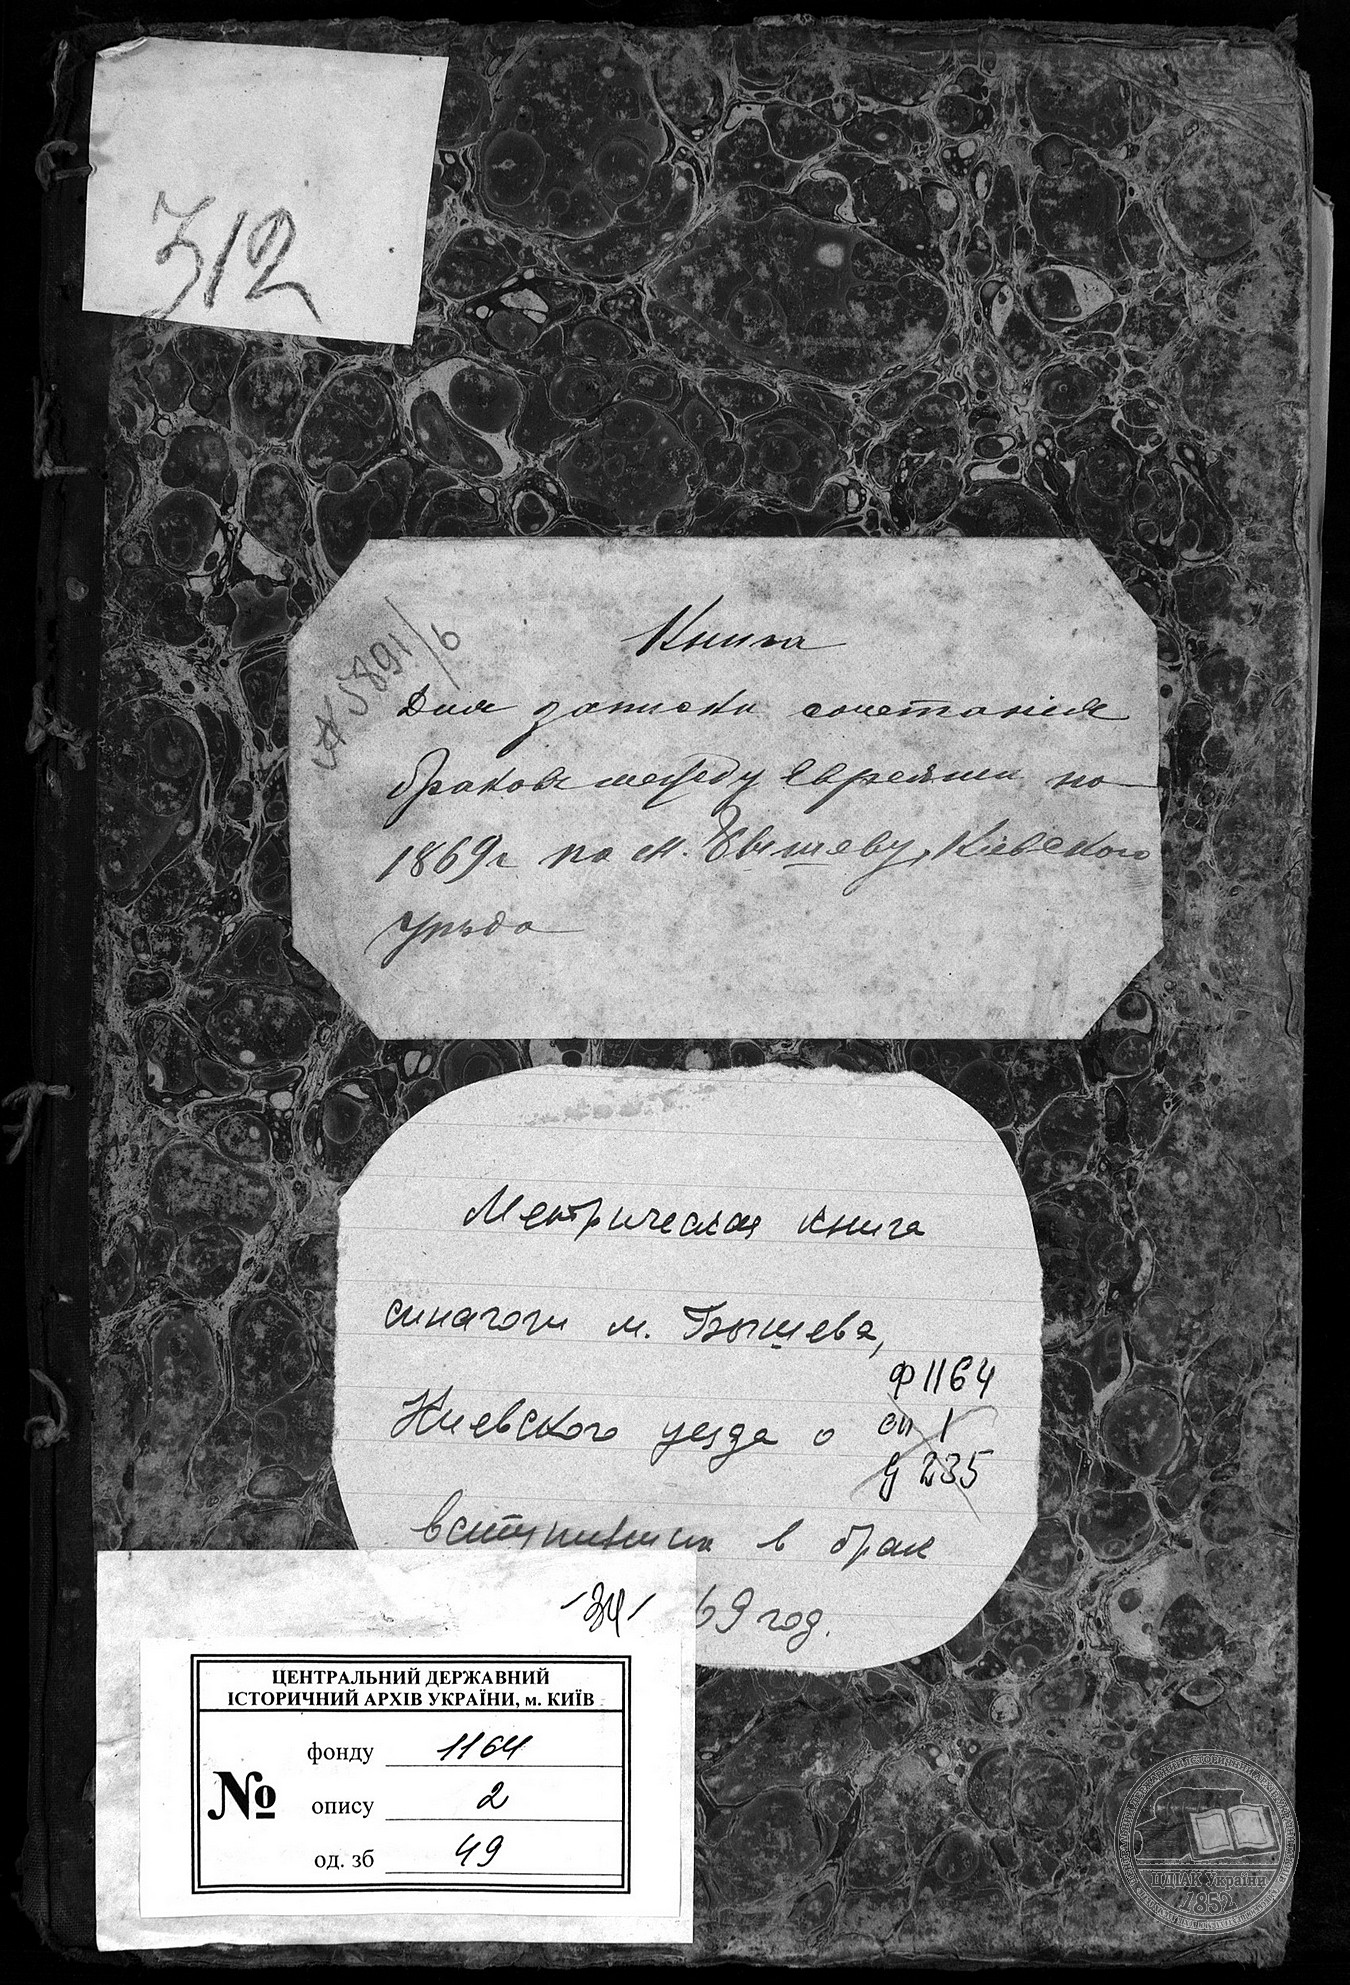 312
№ 5891/б
Книга
Для записки сочетанія
браковъ между Евреями по
1869г по м. Бышеву, Кіевского
уѣзда
Метрическая книга
синагоги м. Бышева,
ф 1164
Киевского уезда о оп 1
д 235
вступивших в брак
69 год.
34
ЦЕНТРАЛЬНИЙ ДЕРЖАВНИЙ
ІСТОРИЧНИЙ АРХІВ УКРАЇНИ, м. КИЇВ
фонду 1164
№ опису 2
од. зб 49
ЦДІАК України
1852